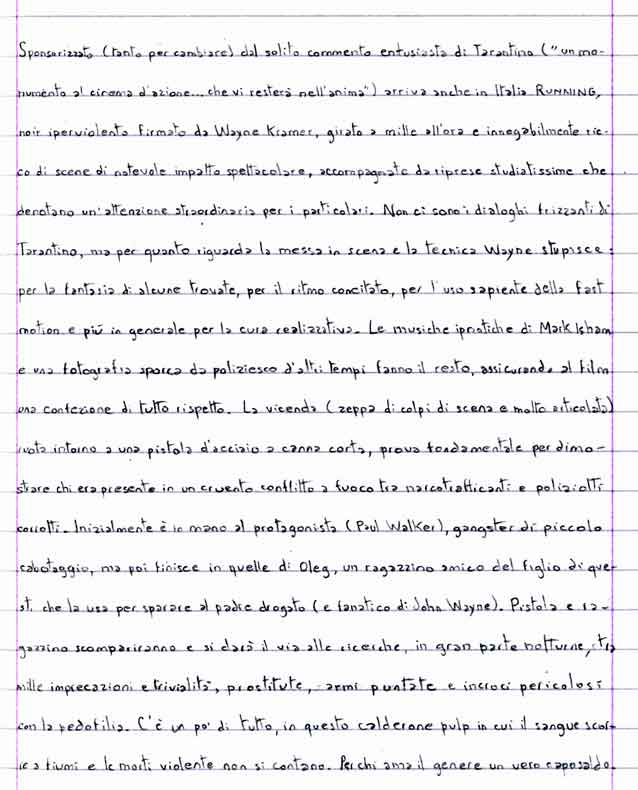 Sponsorizzato (tanto per cambiare) dal solito commento entusiasta di Tarantino ("un mo-
numento al cinema d'azione... che vi resterà nell'anima") arriva anche in Italia RUNNING,
noir iperviolento firmato da Wayne Kramer, girato a mille all'ora e innegabilmente ric-
co di scene di notevole impatto spettacolare, accompagnate da riprese studiatissime che
denotano un'attenzione straordinaria per i particolari. Non ci sono i dialoghi frizzanti di
Tarantino, ma per quanto riguarda la messa in scena e la tecnica Wayne stupisce:
per la fantasia di alcune trovate, per il ritmo concitato, per l'uso sapiente della fast
motion e più in generale per la cura realizzativa. Le musiche ipnotiche di Mark Isham
e una fotografia sporca da poliziesco d'altri tempi fanno il resto, assicurando al film
una confezione di tutto rispetto. La vicenda (zeppa di colpi di scena e molto articolata)
ruota intorno a una pistola d'acciaio a canna corta, prova fondamentale per dimo-
strare chi era presente in un cruento conflitto a fuoco tra narcotrafficanti e poliziotti
corrotti. Inizialmente è in mano al protagonista (Paul Walker), gangster di piccolo
cabotaggio, ma poi finisce in quelle di Oleg, un ragazzino amico del figlio di que-
sti che la usa per sparare al padre drogato (e fanatico di John Wayne). Pistola e ra-
gazzino scompariranno e si darà il via alle ricerche, in gran parte notturne, tra
mille imprecazioni e trivialità, prostitute, armi puntate e incroci pericolosi
con la pedofilia. C'è un po' di tutto, in questo calderone pulp in cui il sangue scor-
re a fiumi e le morti violente non si contano. Per chi ama il genere un vero caposaldo.